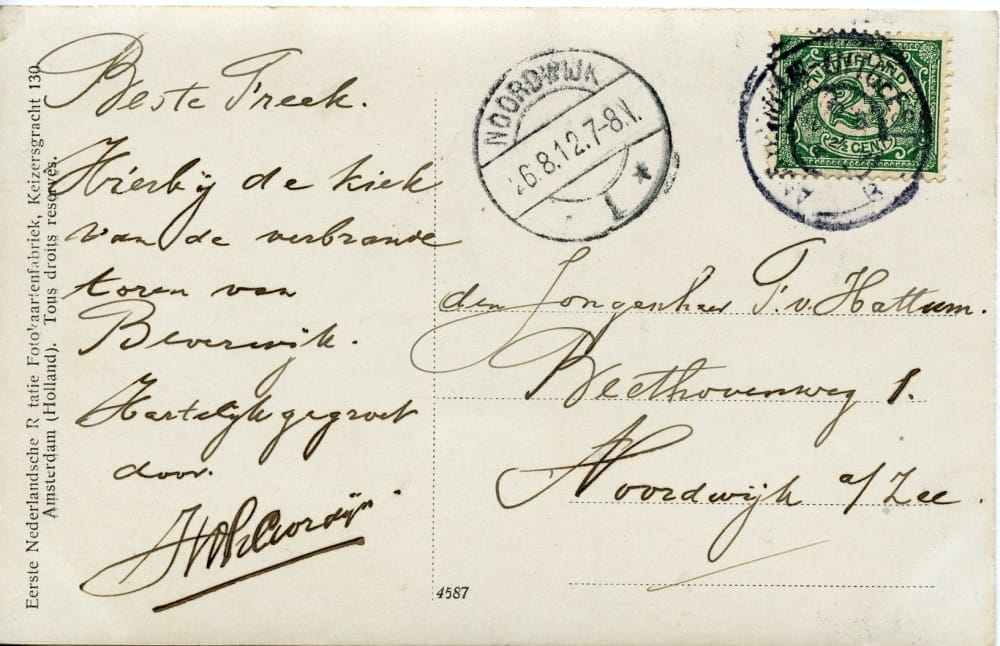 Beste Freek.
Hierbij de kiek
van de verbrande
toren van
Beverwijk.
Hartelijk gegroet
door.
Eerste Nederlandsche R tatie Fotokaartenfabriek, Keizersgracht 130
Amsterdam (Holland). Tous droits reservés.
NOORDWIJK
26.8.12.7-8N.
1
NEDERLAND
2½
2½ CENT
den Jongenheer F. v. Hattum.
Beethovenweg 8.
Noordwijk a/Zee.
4587